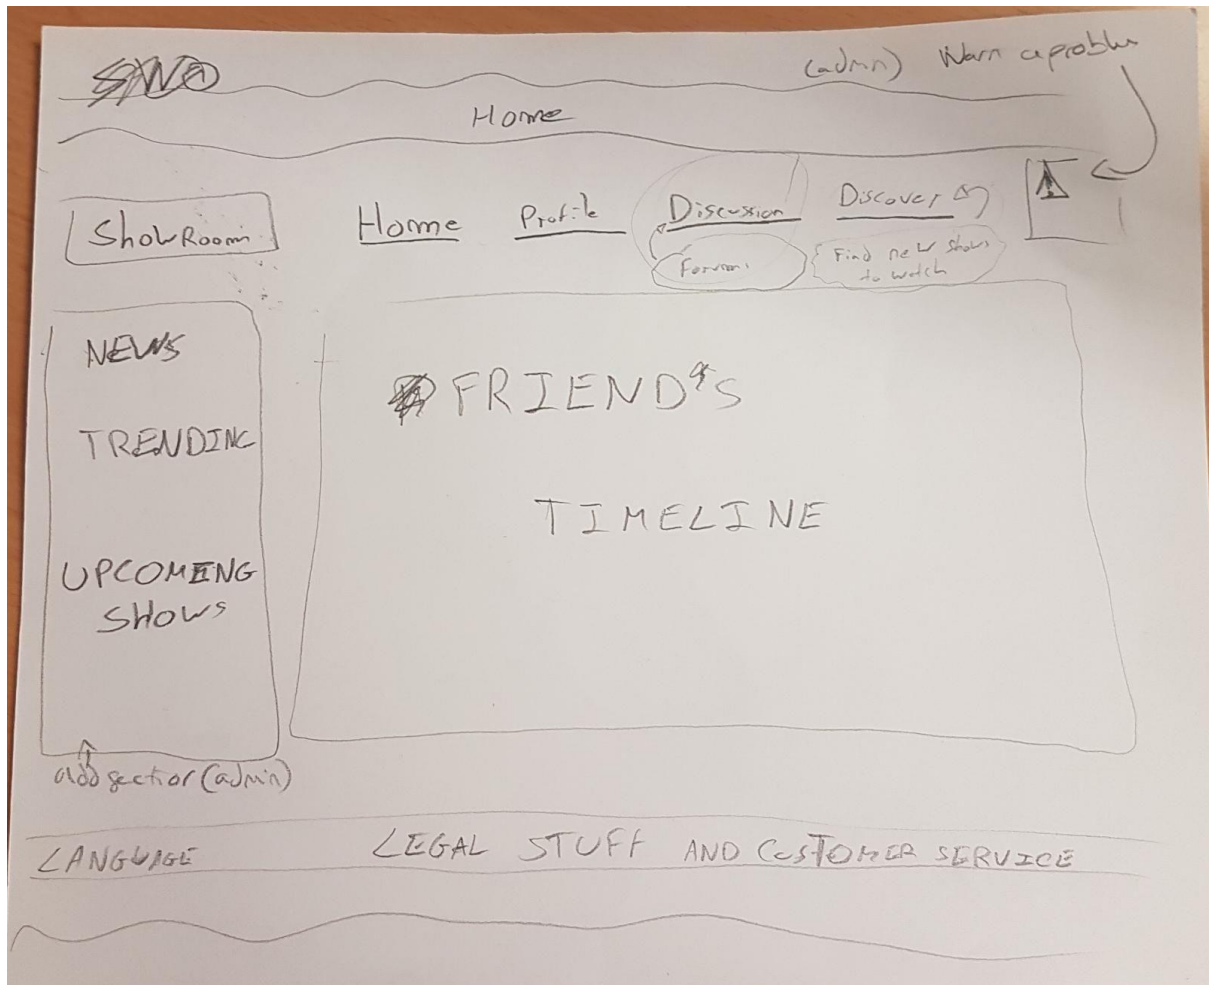 (admin) Warn a problem
Home
ShowRoom
Home Profile Discussion Discover
Forums
Find new shows
to watch
NEWS
TRENDING
UPCOMING
SHOWS
FRIEND'S
TIMELINE
add section (admin)
LANGUAGE LEGAL STUFF AND CUSTOMER SERVICE